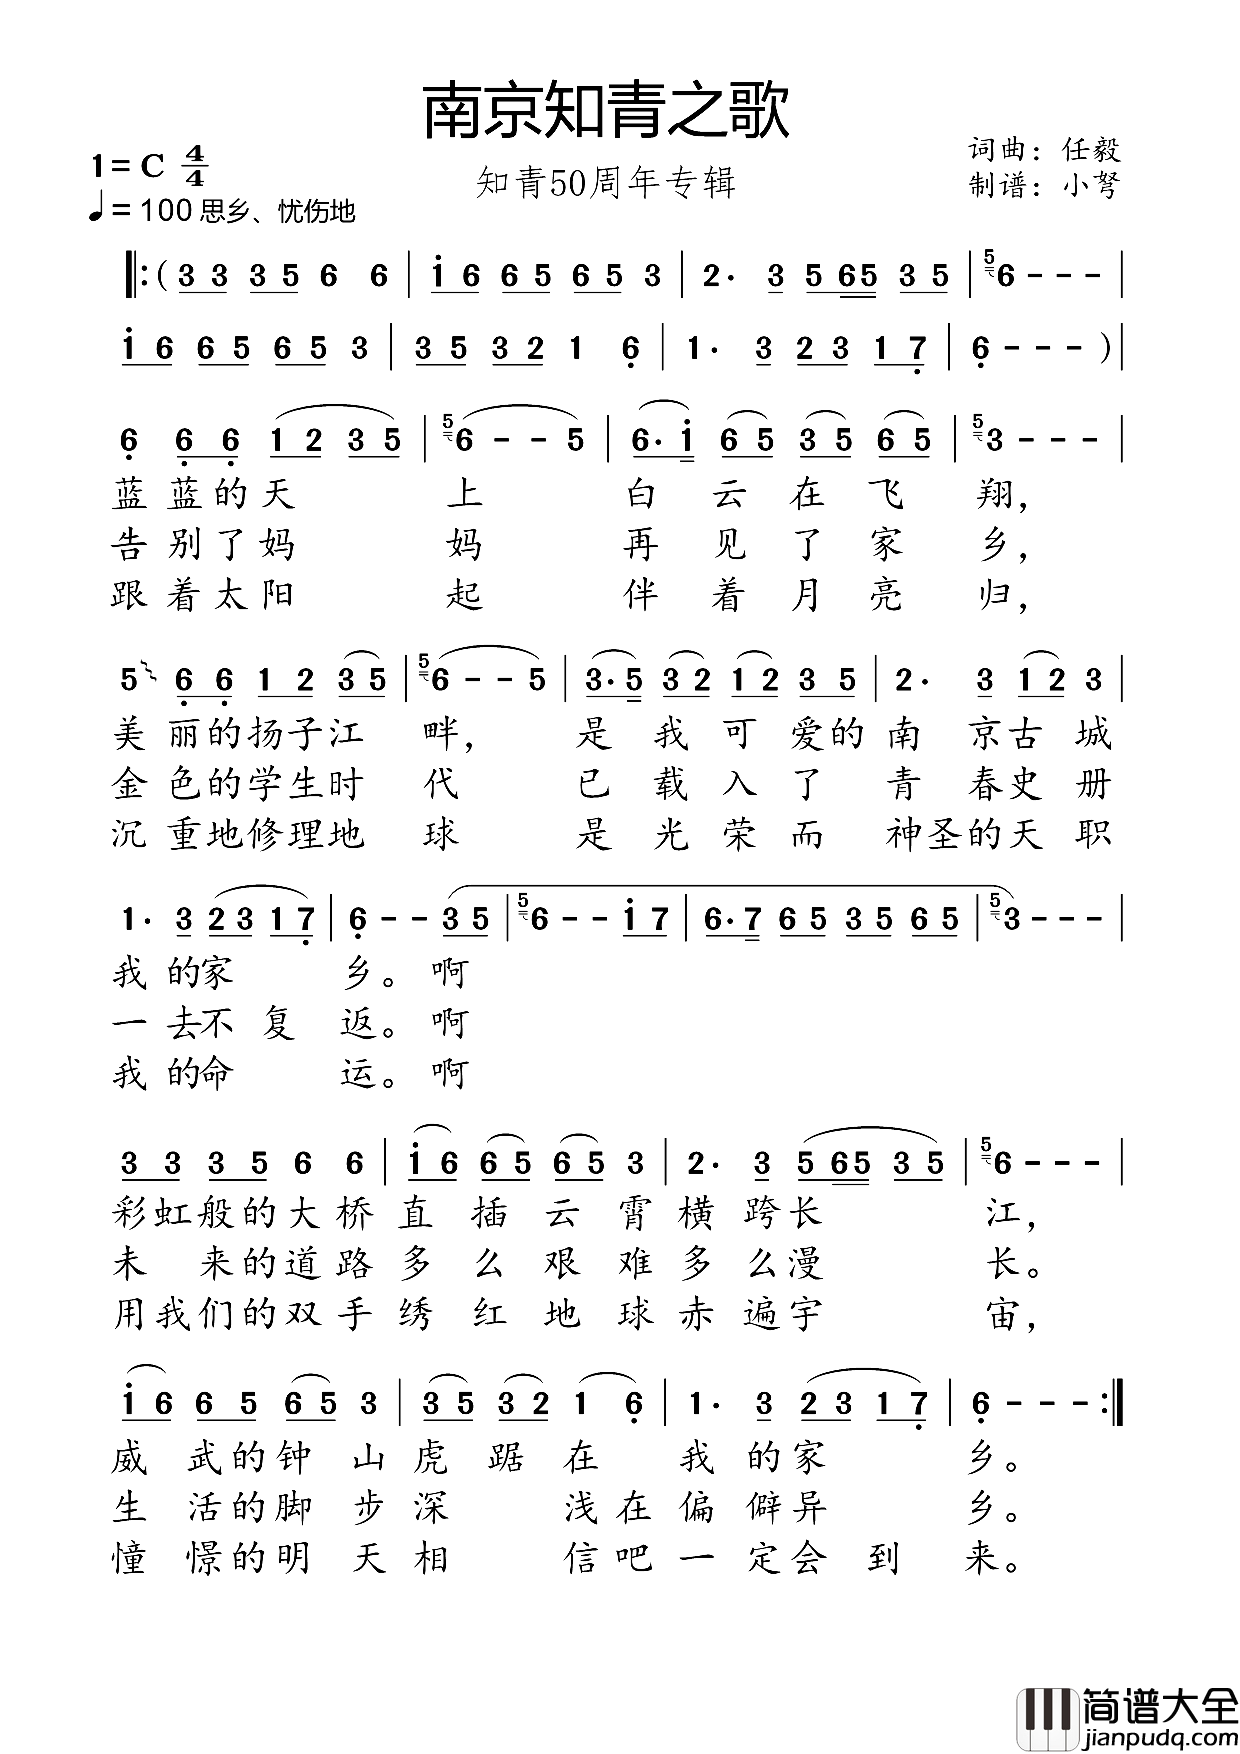 南京知青之歌
知青50周年专辑
词曲：任毅
制谱：小弩
1=C 4/4
♩=100 思乡、忧伤地
‖:(3 3 3 5 6 6 | i 6 6 5 6 5 3 | 2· 3 5 6 5 3 5 | 5 6 - - - |
i 6 6 5 6 5 3 | 3 5 3 2 1 6 | 1· 3 2 3 1 7 | 6 - - - )|
6 6 6 1 2 3 5 | 5 6 - - 5 | 6· i 6 5 3 5 6 5 | 5 3 - - - |
蓝蓝的天上白云在飞翔，
告别了妈妈再见了家乡，
跟着太阳起伴着月亮归，
5 6 6 1 2 3 5 | 5 6 - - 5 | 3· 5 3 2 1 2 3 5 | 2· 3 1 2 3 |
美丽的扬子江畔，是我可爱的南京古城
金色的学生时代已载入了青春史册
沉重地修理地球是光荣而神圣的天职
1· 3 2 3 1 7 | 6 - - 3 5 | 5 6 - - i 7 | 6· 7 6 5 3 5 6 5 | 5 3 - - - |
我的家乡。啊
一去不复返。啊
我的命运。啊
3 3 3 5 6 6 | i 6 6 5 6 5 3 | 2· 3 5 6 5 3 5 | 5 6 - - - |
彩虹般的大桥直插云霄横跨长江，
未来的道路多么艰难多么漫长。
用我们的双手绣红地球赤遍宇宙，
i 6 6 5 6 5 3 | 3 5 3 2 1 6 | 1· 3 2 3 1 7 | 6 - - - :‖
威武的钟山虎踞在我的家乡。
生活的脚步深浅在偏僻异乡。
憧憬的明天相信吧一定会到来。
简谱大全
jianpudq.com